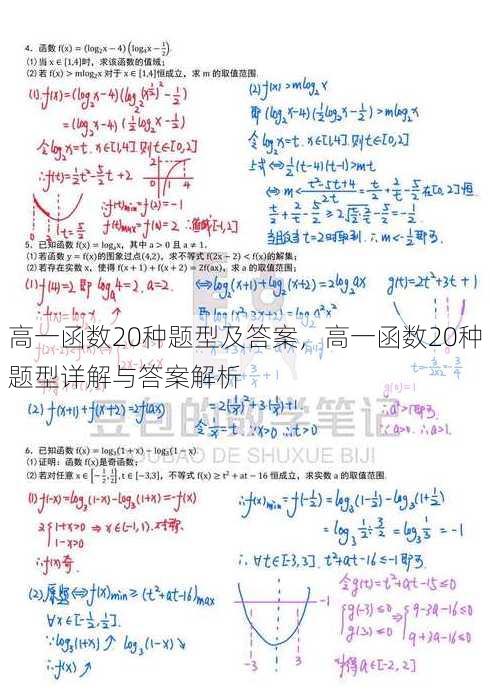 4. 函数 f(x) = (log₂x − 4)(log₄x − 1/2).
(1) 当 x ∈ [1,4]时，求该函数的值域；
(2) 若 f(x) > mlog₂x 对于 x ∈ [1,4]恒成立，求 m 的取值范围.
(1) f(x)=(log₂x-4)(log₂(x)^(1/2)-1/2)
=(log₂x-4)(1/2log₂x-1/2)
令log₂x=t. x∈[1,4].则t∈[0,2]
∴f(t)=1/2t²-5/2t+2
∴f(t)min=f(2)=-1
f(t)max=f(0)=2 ∴值域[-1,2]
t=5/2
(2) f(x)>mlog₂x
即(log₂x-4)(1/2log₂x-1/2)>mlog₂x
令log₂x=t. x∈[1,4].则t∈[0,2]
上式⇔1/2(t-4)(t-1)>mt
⇔m<(t²-5t+4)/2t=t/2+2/t-5/2在[0,2]恒
t/2+2/t-5/2≥2√(t/2·2/t)-5/2=-1/2.
当且仅当t=2时取到.∴m<-1/2即可.
5. 已知函数 f(x) = logₐx，其中 a > 0 且 a ≠ 1.
(1) 若函数 y = f(x)的图象过点(4,2)，求不等式 f(2x − 2) < f(x)的解集；
(2) 若存在实数 x，使得 f(x + 1) + f(x + 2) = 2f(ax)，求 a 的取值范围；
(1) f(4)=2.即logₐ4=2. a=2.
⇔logₐ(x+1)+logₐ(x+2)=2logₐax
g(t)=2t²+3t+1
高一函数20种题型及答案，高一函数20种
题型详解与答案解析
t=-3/(2×2)=-3/4
g(0)=1
(2) f(x+1)+f(x+2)=2f(ax)
令1/x=t.∵x>0 ∴t>0
∴a²>1即可.
∵a>0.∴a>1.
豆包的数学笔记
DOUBAO DE SHUXUE BIJI
6. 已知函数 f(x) = log₃(1 + x) − log₃(1 − x).
(1) 证明：函数 f(x)是奇函数；
(2) 若对任意 x ∈ [−1/2,1/2], t ∈ [−3,3]，不等式 f(x) ≥ t² + at − 16 恒成立，求实数 a 的取值范围.
(1) f(-x)=log₃(1-x)-log₃(1+x)=-f(x)
又{1+x>0 1-x>0 ⇒x∈(-1,1).对称.
∴f(x)奇
(2)原题⇔f(x)min≥(t²+at-16)max
∀x∈[-1/2,1/2].
∵log₃(1+x)↑ log₃(1-x)↘
∴f(x)↑
∴f(x)min=f(-1/2)=log₃(1-1/2)-log₃(1+1/2)
=log₃ 1/2÷3/2=log₃ 1/3=-1
∴∀t∈[-3,3].t²+at-16≤-1即可.
令g(t)=t²+at-15≤0
{g(-3)≤0 g(3)≤0 ⇒{9-3a-16≤0 9+3a-16≤0
-1
-3
3
可得a∈[-2,2]